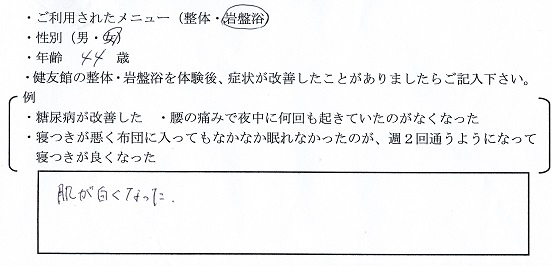 ・ご利用されたメニュー（整体・岩盤浴）
・性別（男・女）
・年齢 44 歳
・健友館の整体・岩盤浴を体験後、症状が改善したことがありましたらご記入下さい。
例
・糖尿病が改善した ・腰の痛みで夜中に何回も起きていたのがなくなった
・寝つきが悪く布団に入ってもなかなか眠れなかったのが、週２回通うようになって
寝つきが良くなった
肌が白くなった.